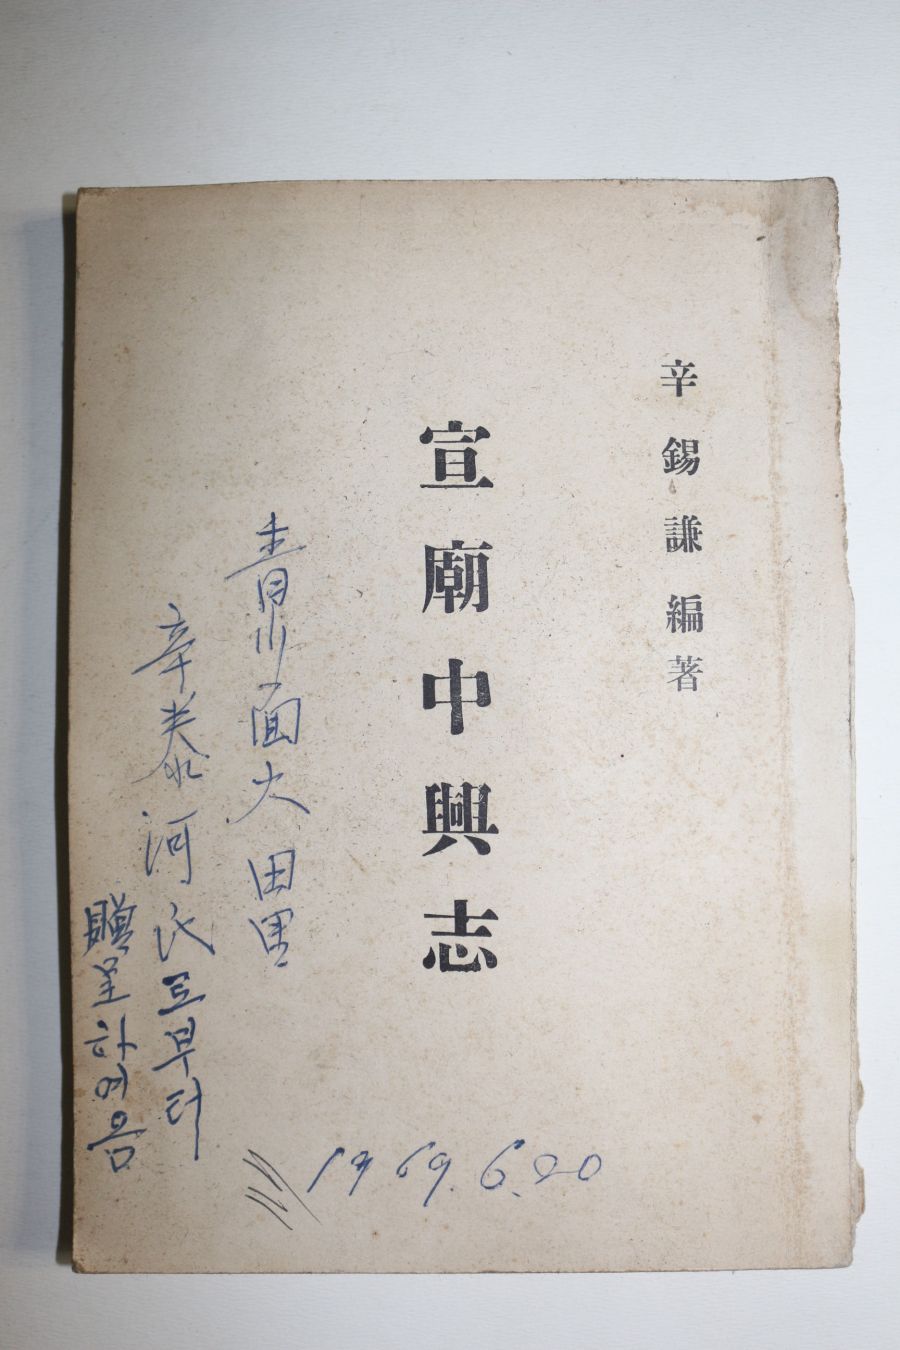 辛錫謙編著
宣廟中興志
青川面大田里
辛泰河氏로부터
贈呈하여옴
1969.6.20